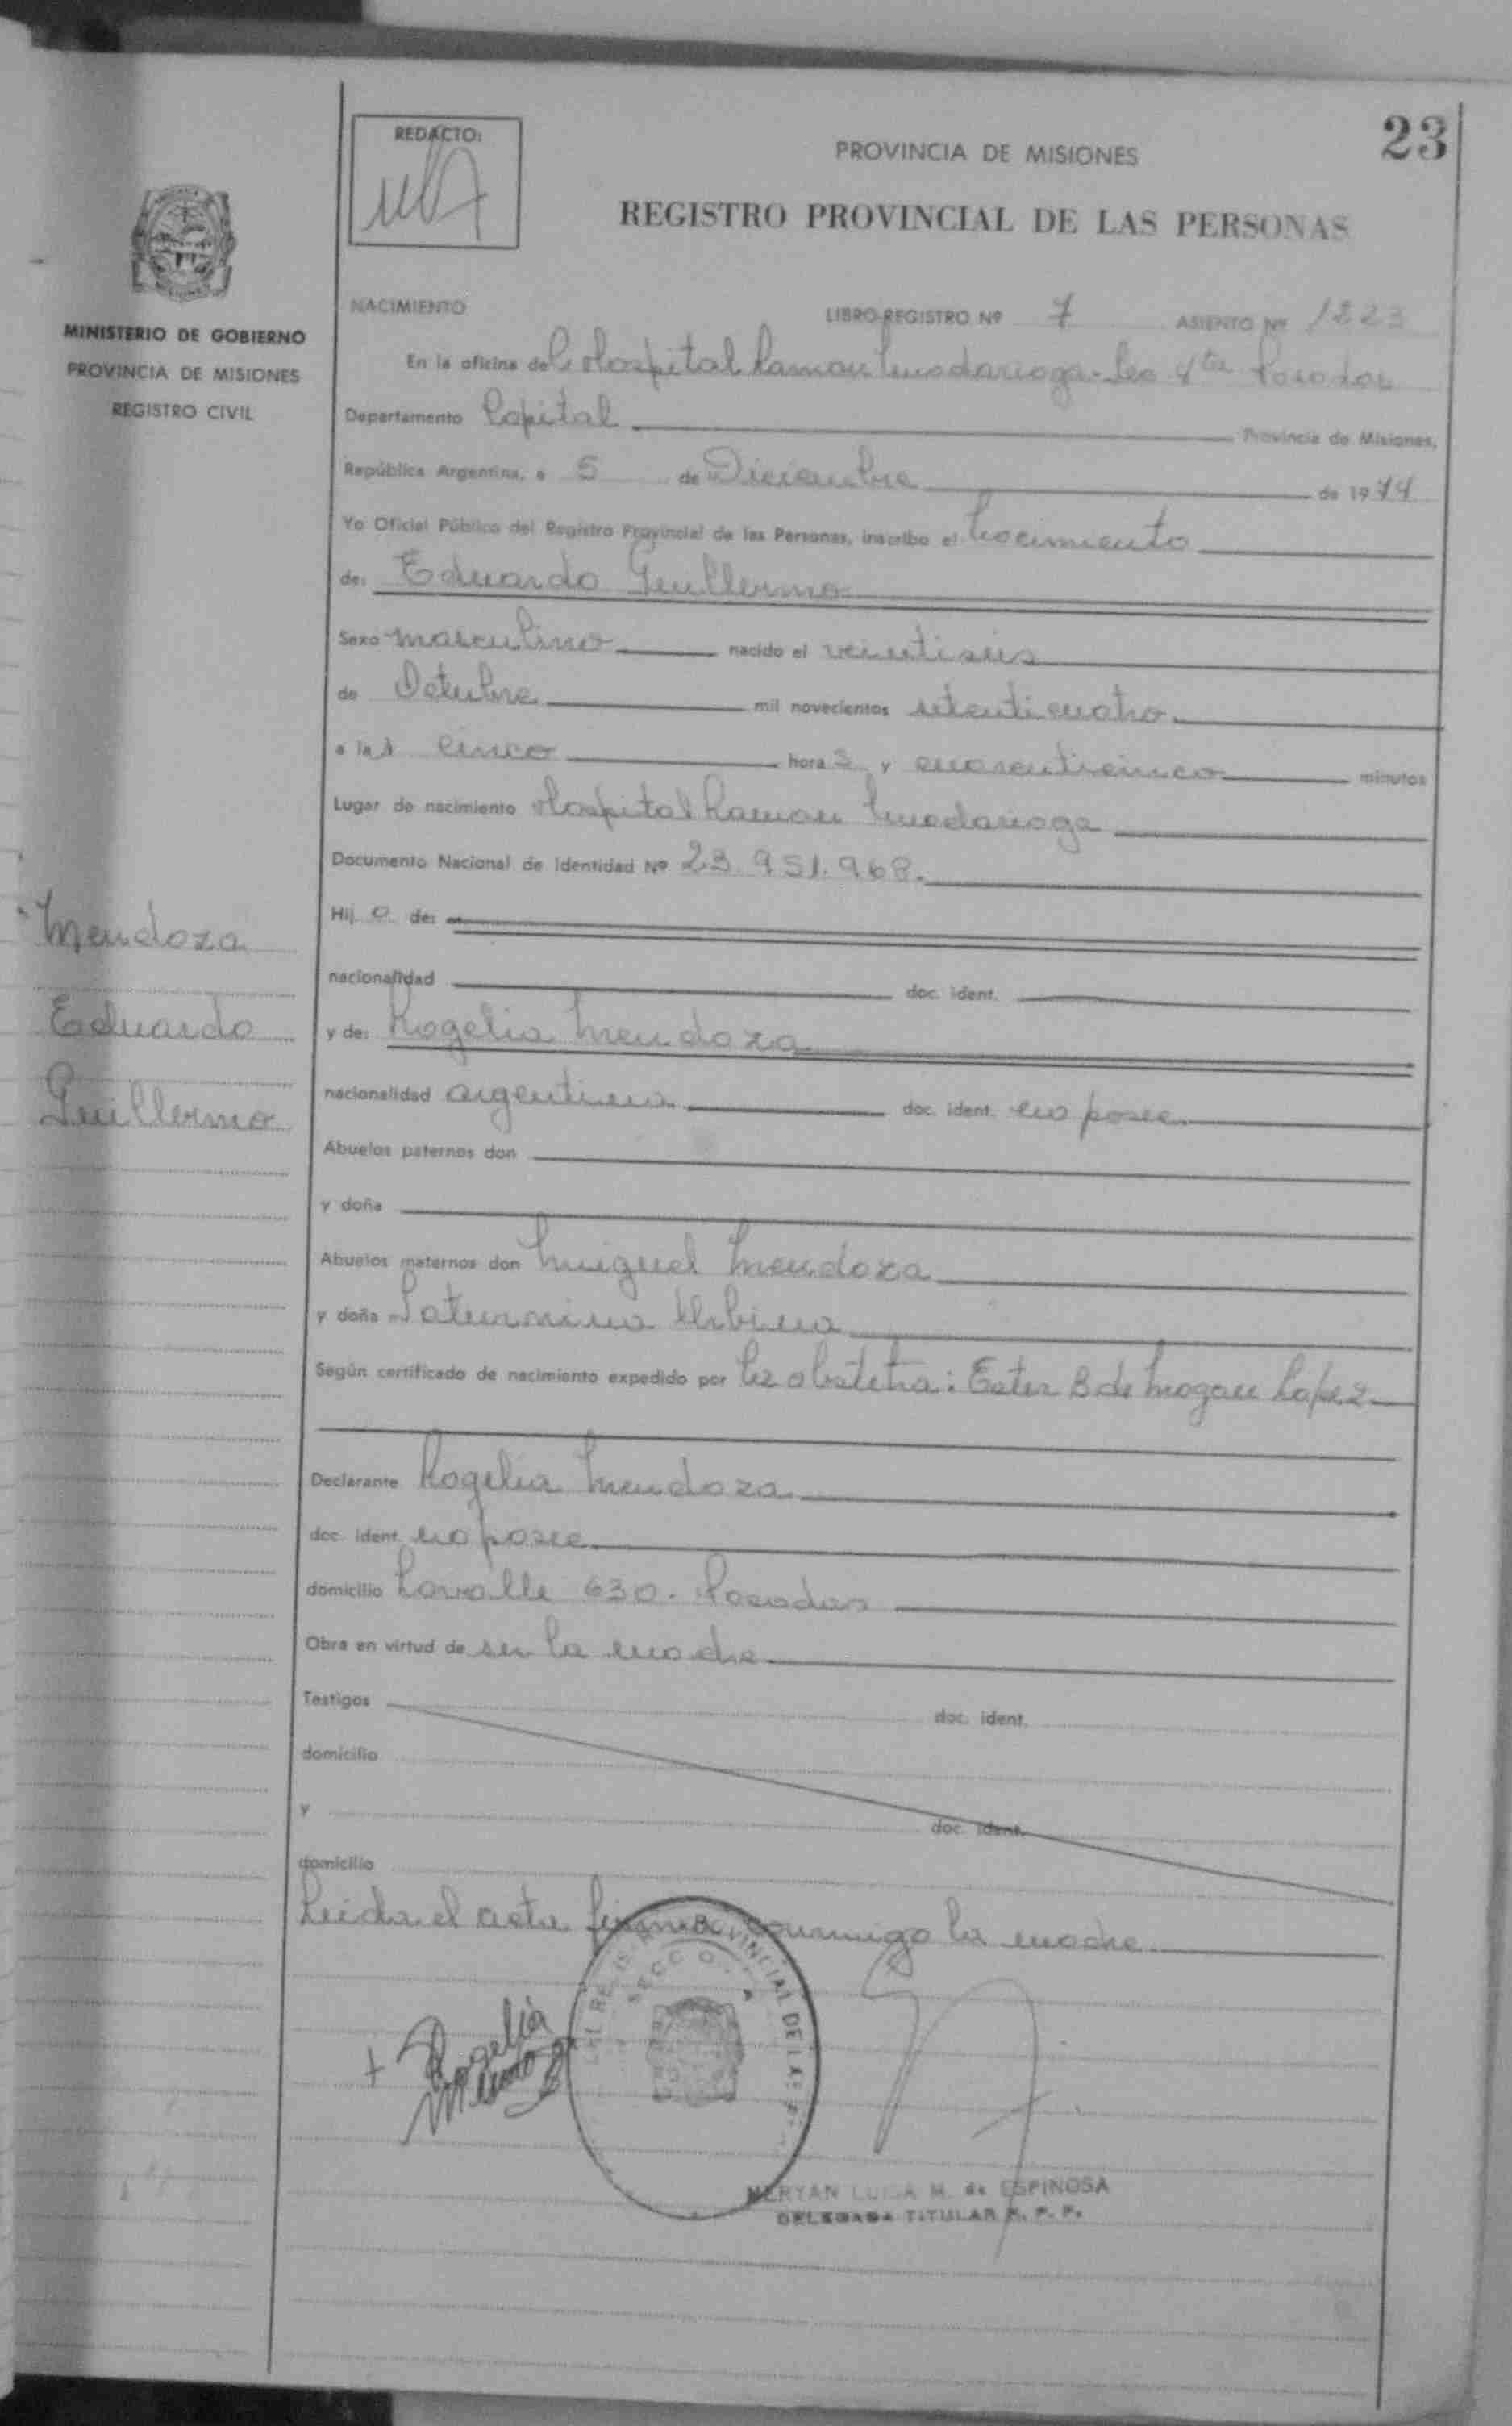 23
REDACTO:
PROVINCIA DE MISIONES
REGISTRO PROVINCIAL DE LAS PERSONAS
MINISTERIO DE GOBIERNO
PROVINCIA DE MISIONES
REGISTRO CIVIL
NACIMIENTO LIBRO-REGISTRO Nº 7 ASIENTO Nº 1223
En la oficina del Hospital Ramon Madariaga - Sec 4ta Posadas
Departamento Capital Provincia de Misiones,
República Argentina, a 5 de Diciembre de 1974
Yo Oficial Público del Registro Provincial de las Personas, inscribo el nacimiento
de: Eduardo Guillermo
Sexo masculino nacido el veintiseis
de Octubre mil novecientos setenticuatro
a las cinco horas y cuarenticinco minutos
Lugar de nacimiento Hospital Ramon Madariaga
Documento Nacional de Identidad Nº 23.951.968.
Hijo de:
nacionalidad doc. ident.
y de: Rogelia Mendoza
nacionalidad argentina doc. ident. no posee
Mendoza
Eduardo
Guillermo
Abuelos paternos don
y doña
Abuelos maternos don Miguel Mendoza
y doña Saturnina Urbina
Según certificado de nacimiento expedido por la obstetra: Ester B de Lopez
Declarante Rogelia Mendoza
doc. ident. no posee
domicilio Lavalle 630. Posadas
Obra en virtud de ser la madre
Testigos doc. ident.
domicilio
y doc. ident.
domicilio
Leida el acta firma conmigo la madre
Rogelia
Mendoza
MERYAN LUISA M. de ESPINOSA
DELEGADA TITULAR R. P. P.